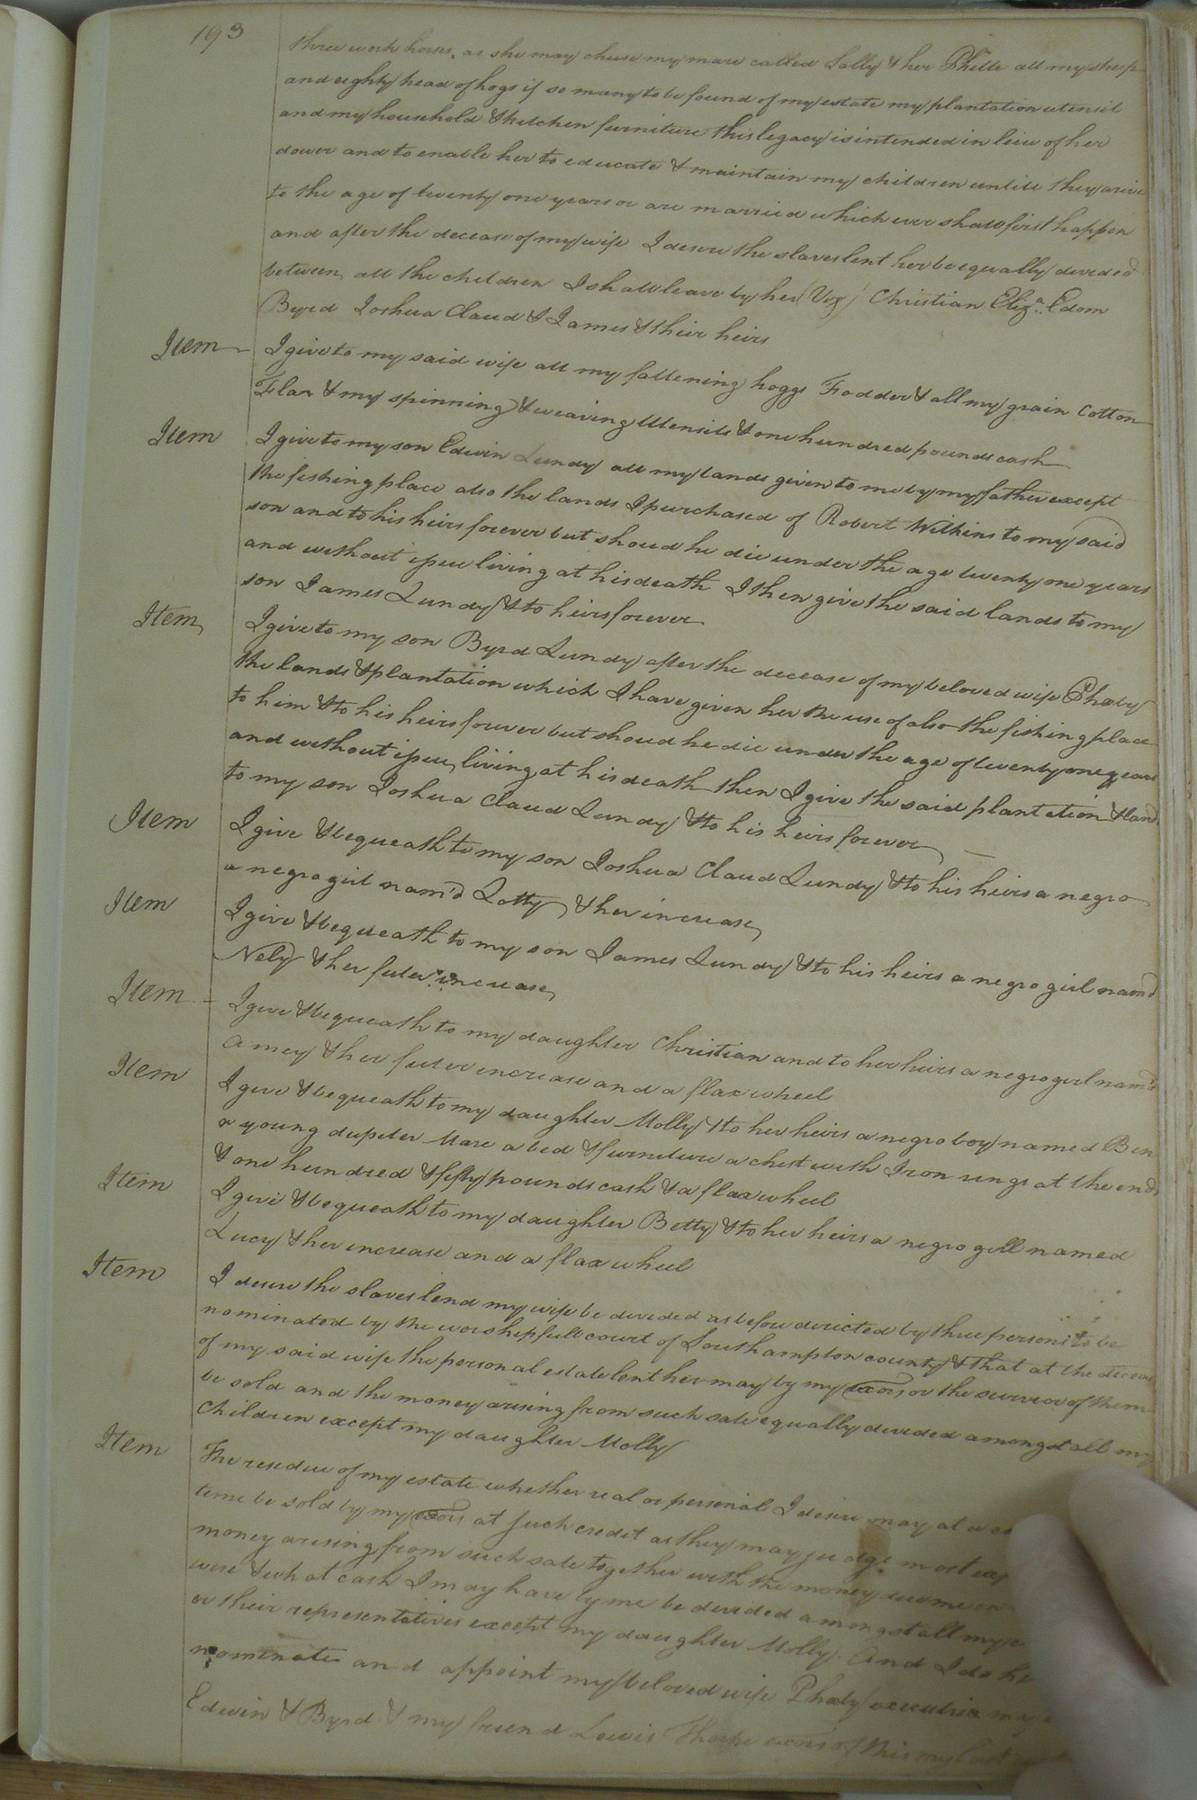 193
three work horses, as she may chuse my mare called Sally & her Phille all my sheep
and eighty head of hogs if so many to be found of my estate my plantation utensil
and my household & kitchen furniture this legacy is intended in lieu of her
dower and to enable her to educate & maintain my children untill they arive
to the age of twenty one years or are married which ever shall first happen
and after the decease of my wife I desire the slaves lent her be equally devided
between all the children I shall leave by her (Viz) Christian Eliza. Edom
Byrd Joshua Claud & James & their heirs
Item I give to my said wife all my fattening hoggs Fodder & all my grain Cotton
Flax & my spinning & weaving Utensils & one hundred pounds cash
Item I give to my son Edwin Lundy all my lands given to me by my father except
the fishing place also the lands I purchased of Robert Wilkins to my said
son and to his heirs forever but shoud he die under the age twenty one years
and without issue living at his death I then give the said lands to my
son James Lundy & to heirs forever
Item I give to my son Byrd Lundy after the decease of my beloved wife Phoeby
the lands & plantation which I have given her the use of also the fishing place
to him & to his heirs forever but shoud he die under the age of twenty one years
and without issue living at his death then I give the said plantation & land
to my son Joshua Claud Lundy & to his heirs forever
Item I give & bequeath to my son Joshua Claud Lundy & to his heirs a negro
a negro girl nam'd Lotty & her increase
Item I give & bequeath to my son James Lundy & to his heirs a negro girl namd
Nely & her futer increase
Item I give & bequeath to my daughter Christian and to her heirs a negro girl nam'd
Amey & her futer increase and a flax wheel
Item I give & bequeath to my daughter Molly & to her heirs a negro boy named Ben
a young dupeter Mare a bed & furniture a chest with Iron rings at the ends
& one hundred & fifty pounds cash & a flax wheel
Item I give & bequeath to my daughter Betty & to her heirs a negro gill named
Lucy & her increase and a flax wheel
Item I desire the slaves lend my wife be devided as before directed by three persons to be
nominated by the worshepfull court of Southampton county & that at the decease
of my said wife the personal estate lent her may by my exors or the survivor of them
be sold and the money arising from such sale equally devided amongst all my
Children except my daughter Molly
Item The resedue of my estate whether real or personal I desire may at a
time be sold by my exors at such credit as they may judge most
money arising from such sale together with the money
& what cash I may have by me be devided amongst all my
or their representatives except my daughter Molly. And I do
nominate and appoint my beloved wife Phoeby executrix my
Edwin & Byrd & my friend Lewis Thorpe exors of this my last